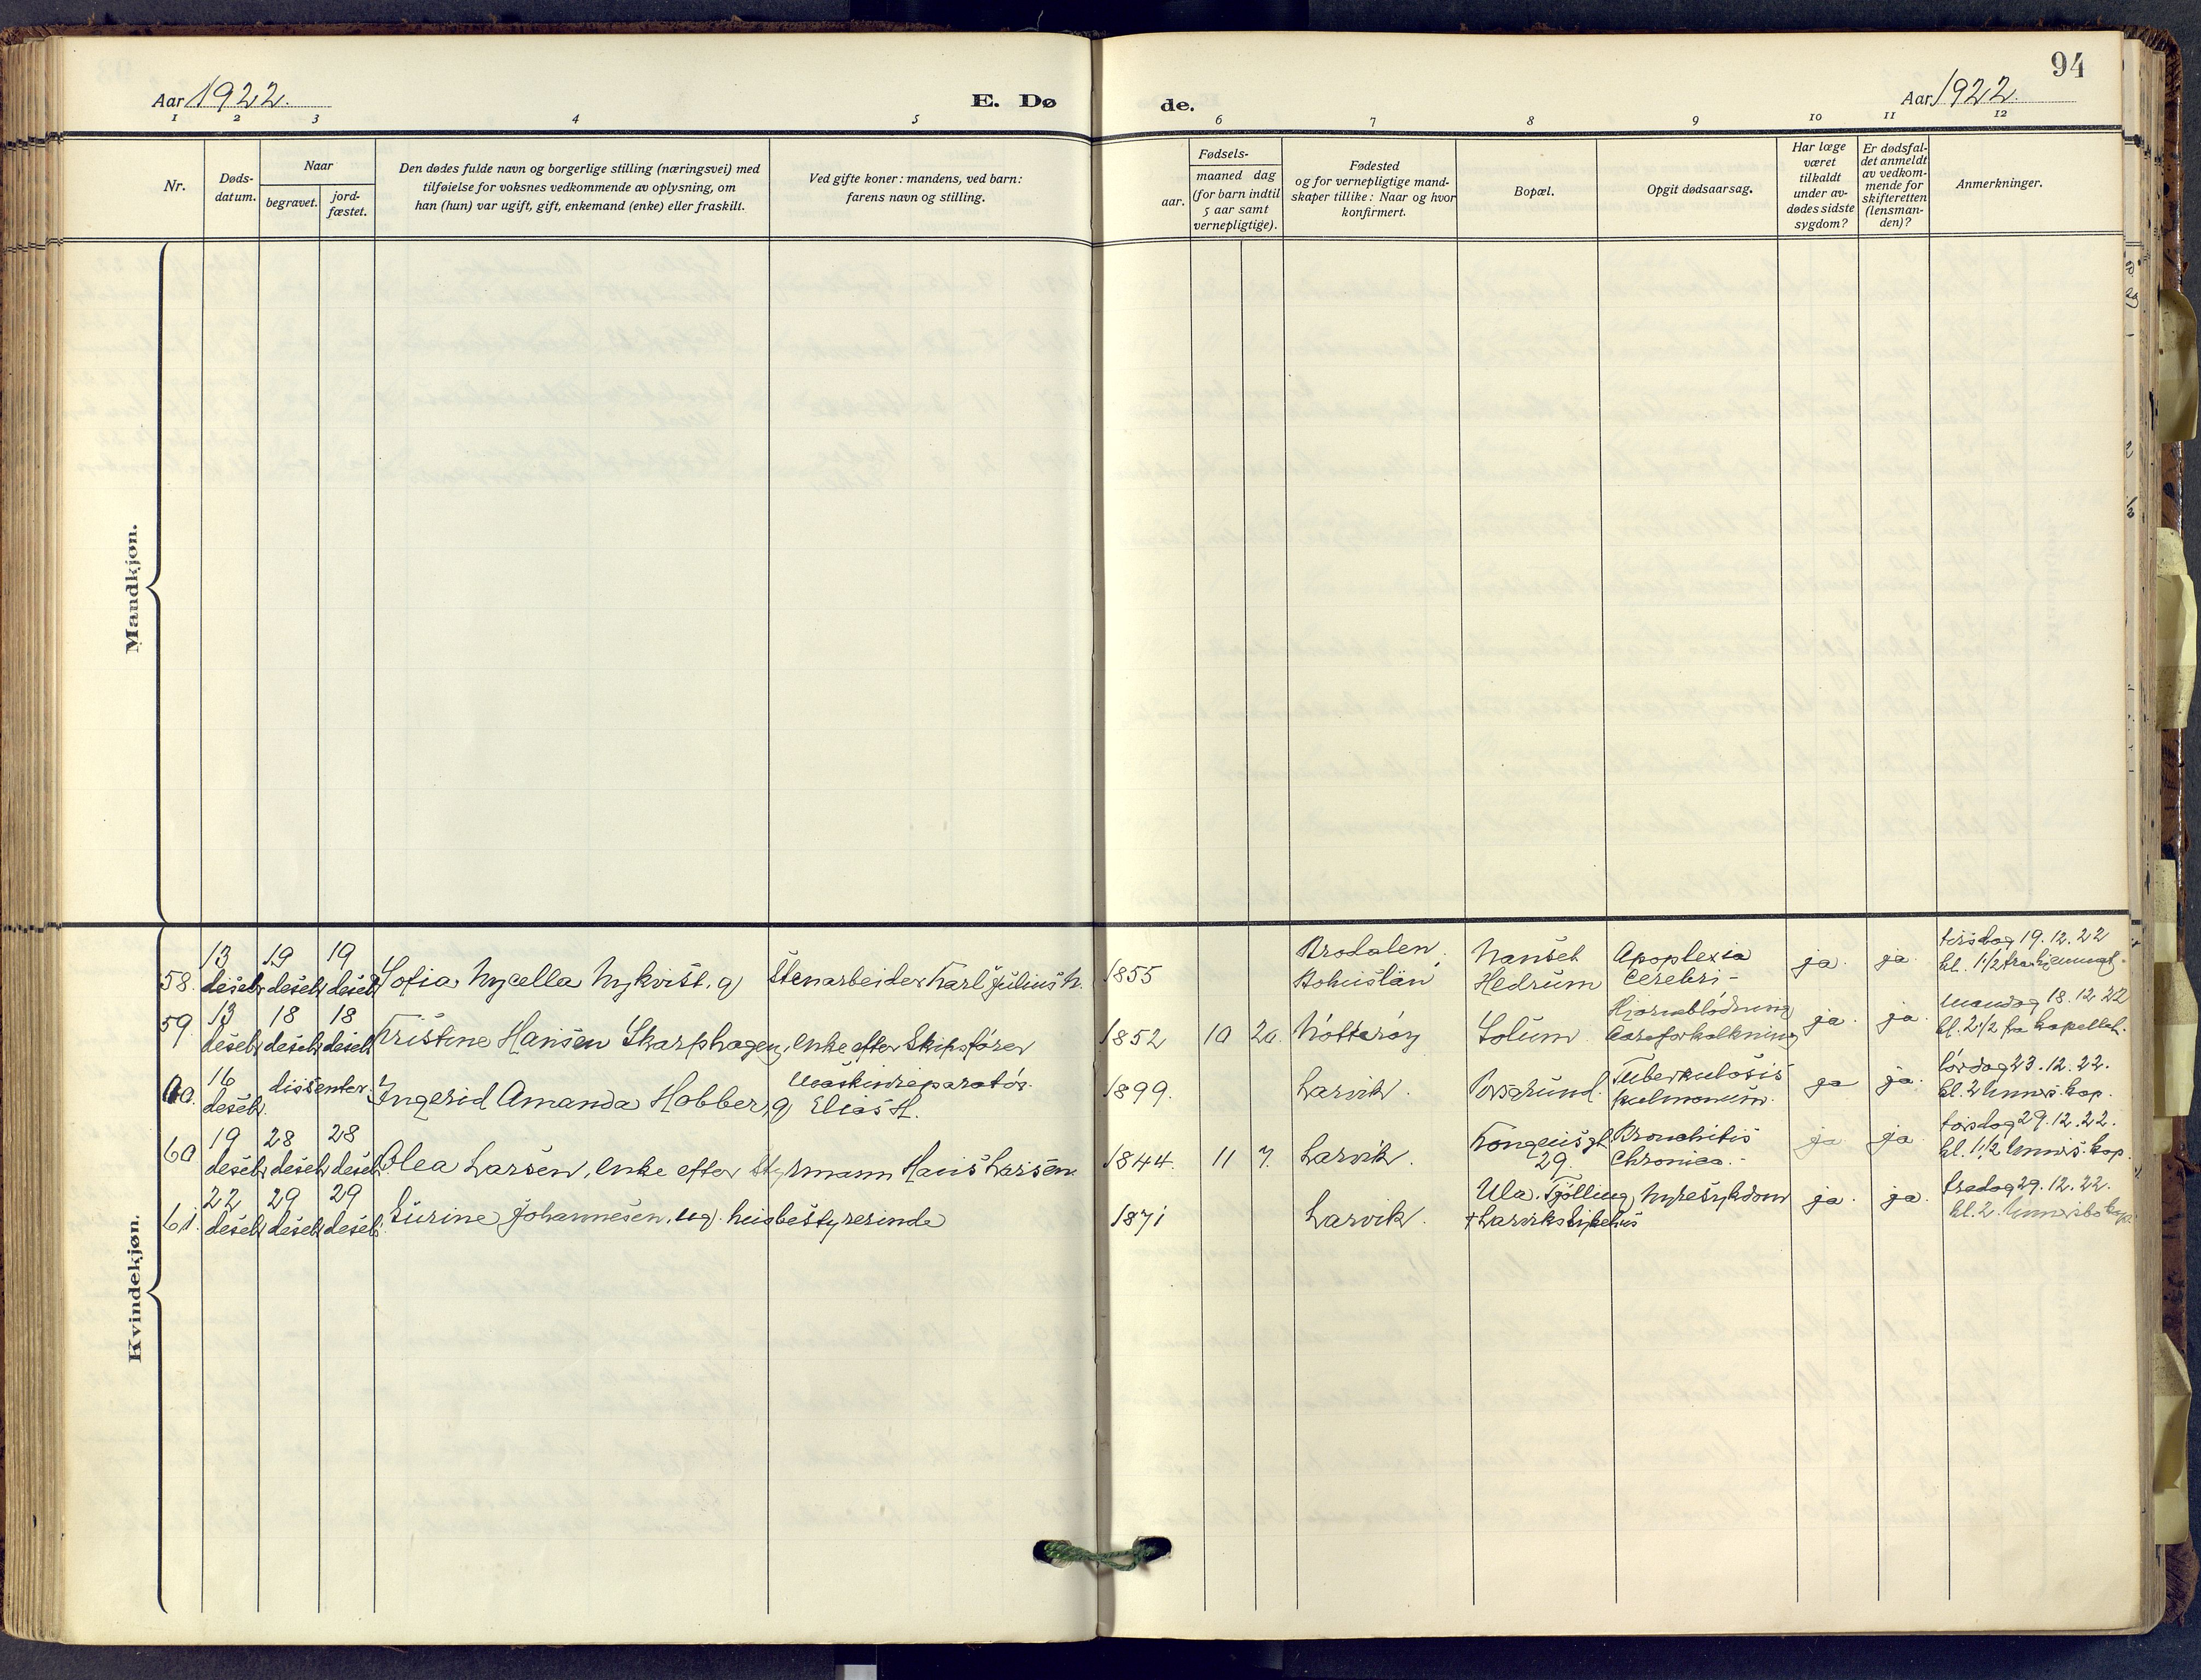 94
Aar 1922.
E. Dø
de.
Aar 1922.
1 2 3 4 5 6 7 8 9 10 11 12
Nr.
Døds-
datum.
Naar
begravet.
jord-
fæstet.
Den dødes fulde navn og borgerlige stilling (næringsvei) med
tilføielse for voksnes vedkommende av oplysning, om
han (hun) var ugift, gift, enkemand (enke) eller fraskilt.
Ved gifte koner: mandens, ved barn:
farens navn og stilling.
Fødsels-
aar.
maaned dag
(for barn indtil
5 aar samt
vernepligtige).
Fødested
og for vernepligtige mand-
skaper tillike: Naar og hvor
konfirmert.
Bopæl.
Opgit dødsaarsag.
Har læge
været
tilkaldt
under av-
dødes sidste
sygdom?
Er dødsfal-
det anmeldt
av vedkom-
mende for
skifteretten
(lensman-
den)?
Anmerkninger.
Mandkjøn.
Kvindekjøn.
13 19 19 Brodalen, Nanset Apoplexia tirsdag 19.12.22
58. desbr desbr desbr Sofia Nycella Nykvist. g Stenarbeider Karl Julius N. 1855 Bohuslän Hedrum Cerebri - ja. ja. kl. 1 1/2 fra hjemmet.
13 18 18 Hjerneblödning mandag 18.12.22
59 desbr desbr desbr Kristine Hansen Skarphagen, enke efter Skipsförer 1852 10 20. Nötteröy Solum Aareforkalkning ja. ja. kl. 2 1/2 fra kapellet.
16 dissenter. Maskinreparatör. Tuberkulosis lördag 23.12.22.
60. desbr. Ingerid Amanda Hobber, g Elias H. 1899. Larvik. Porsgrund. pulmonum. ja ja. kl. 2 Unners. kap.
19 28 28 Kongensgt. Bronchitis torsdag 29.12.22.
60 desbr desbr desbr Olea Larsen, enke efter Styrmann Hans Larsen. 1844. 11 7. Larvik. 29. Chronica. - ja ja. kl. 1 1/2 Unners. kap.
22 29 29 Ula. Tjölling Nyresykdom fredag 29.12.22.
61. desbr desbr desbr. Surine Johannesen, ug. husbestyrerinde 1871 Larvik. + Larviks sykehus ja. ja. kl. 2.